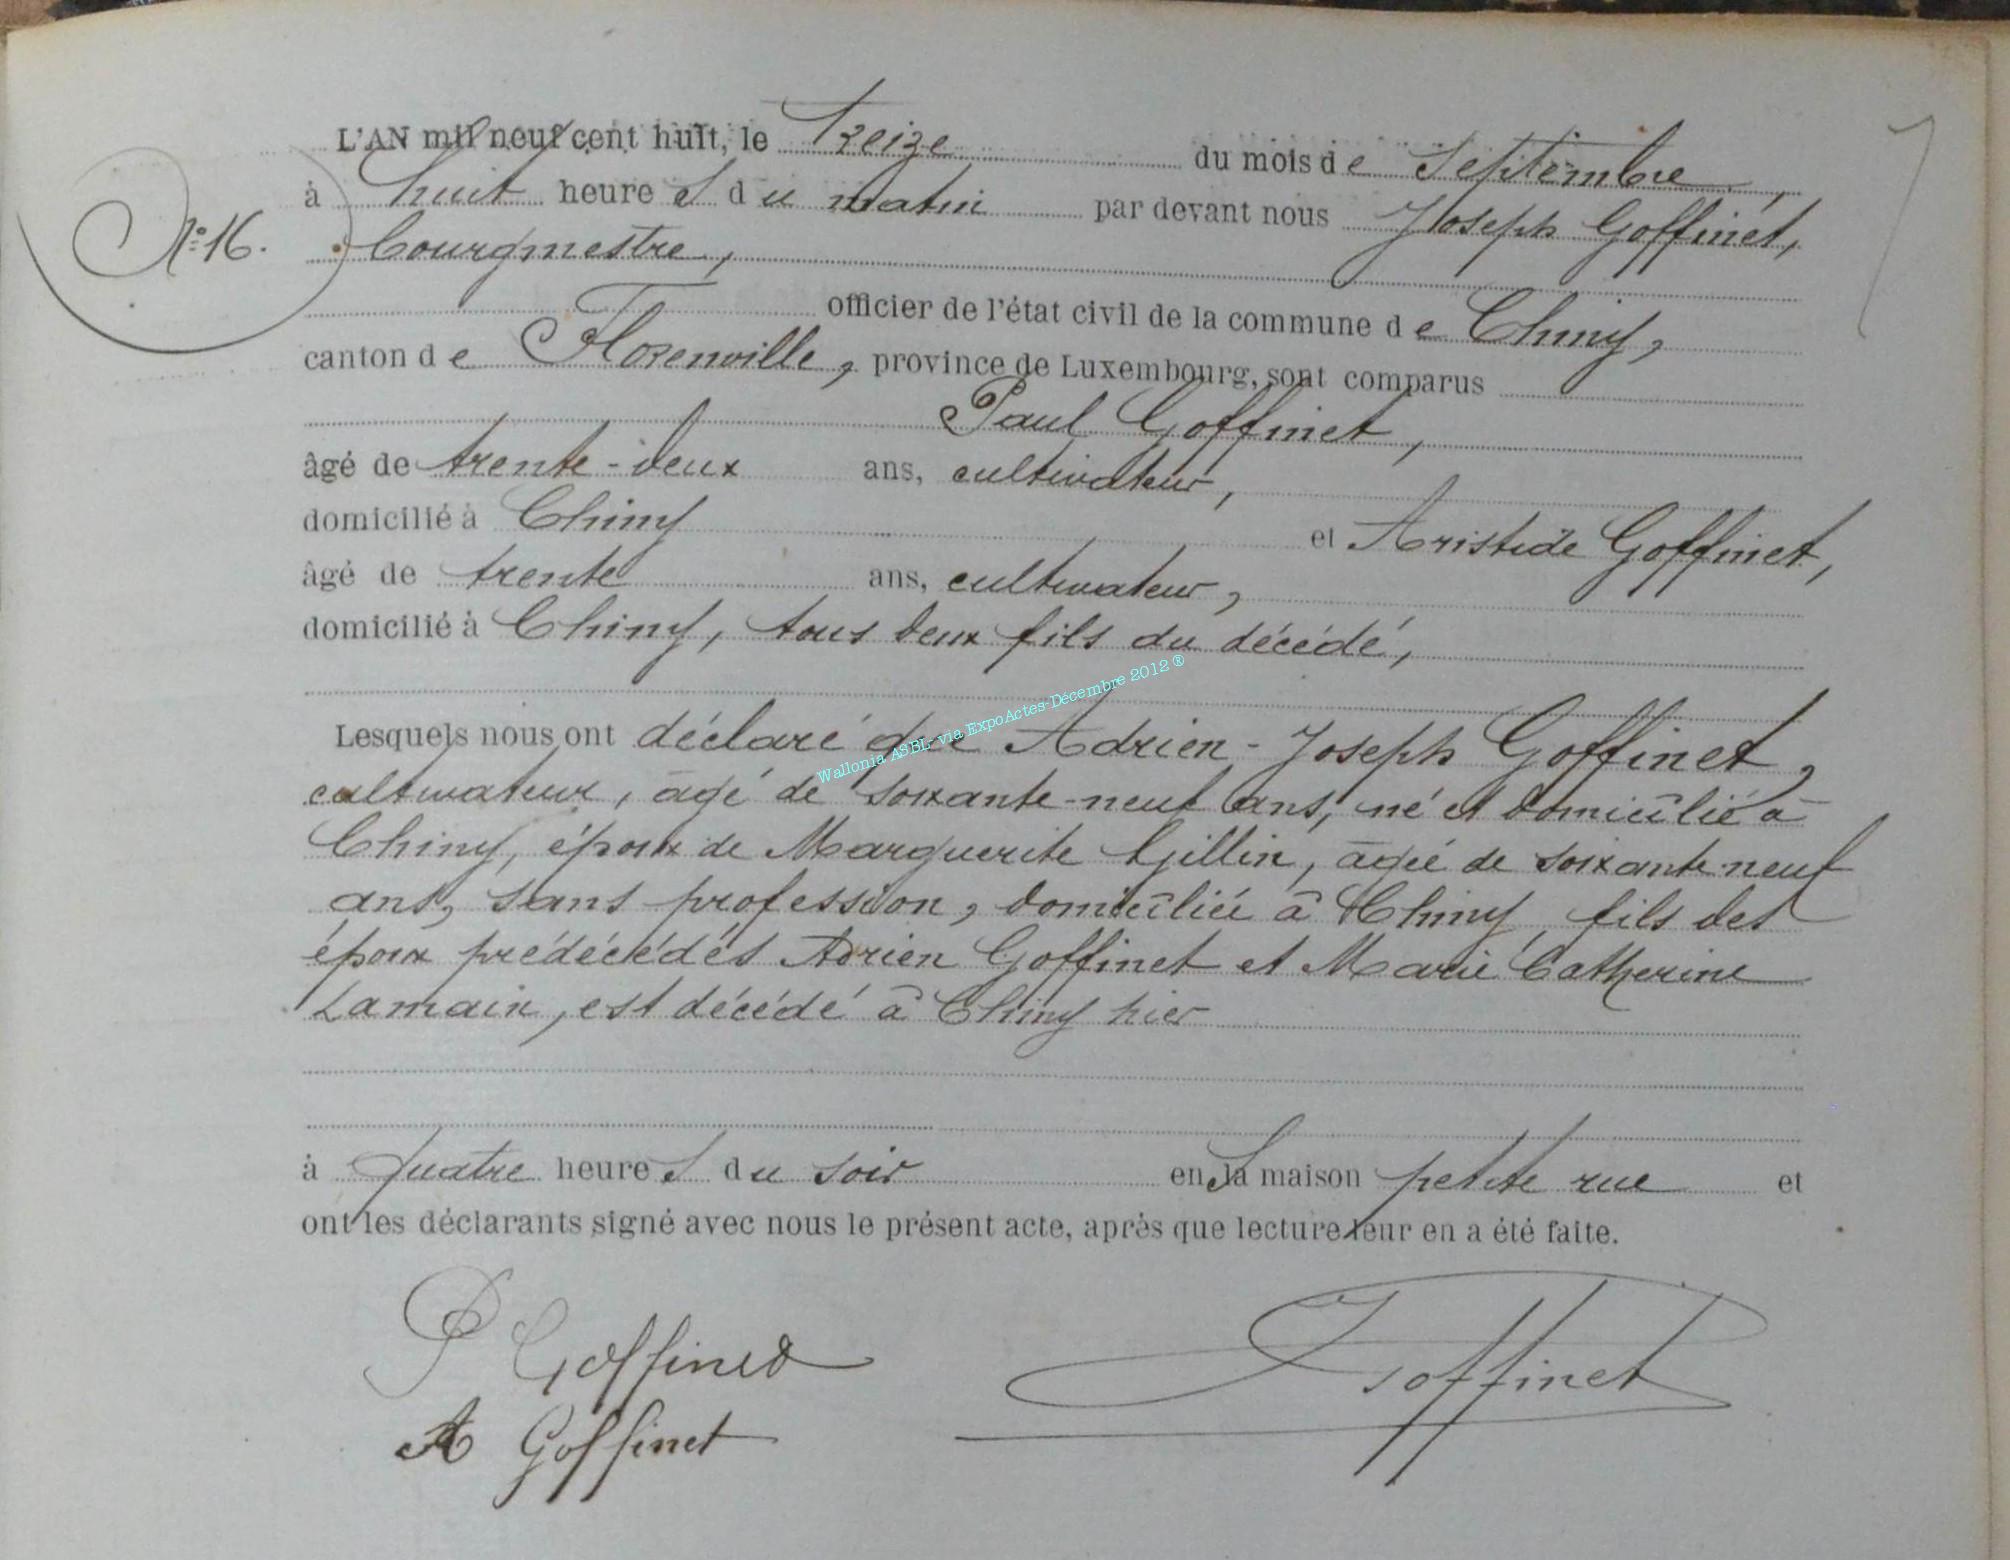 L'AN mil neuf cent huit, le Treize du mois de Septembre,
à huit heures du matin par devant nous Joseph Goffinet,
N° 16.
Bourgmestre,
officier de l'état civil de la commune de Chiny,
canton de Florenville, province de Luxembourg, sont comparus
Paul Goffinet,
âgé de trente-deux ans, cultivateur,
domicilié à Chiny et Aristide Goffinet,
âgé de trente ans, cultivateur,
domicilié à Chiny, tous deux fils du décédé,
Wallonia ASBL- via ExpoActes-Décembre 2012 ®
Lesquels nous ont déclaré que Adrien-Joseph Goffinet,
cultivateur, âgé de soixante-neuf ans, né et domicilié à
Chiny, époux de Marguerite Gillin, âgée de soixante-neuf
ans, sans profession, domiciliée à Chiny, fils des
époux prédécédés Adrien Goffinet et Marie Catherine
Lamain, est décédé à Chiny hier
à quatre heures du soir en sa maison petite rue et
ont les déclarants signé avec nous le présent acte, après que lecture leur en a été faite.
P Goffinet
J Goffinet
A Goffinet